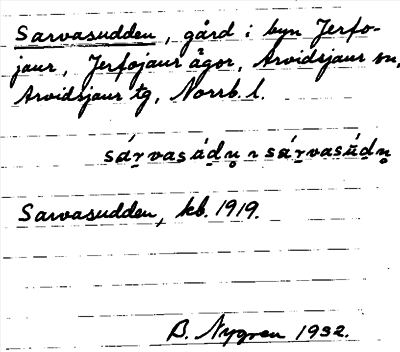 Sarvasudden, gård i byn Jerfo-
jaur, Jerfojaur ägor, Arvidsjaur sn,
Arvidsjaur tg, Norrb. l.
sárvasádṇ ~ sárvasúdṇ
Sarvasudden, kb. 1919.
B. Nygren 1932.